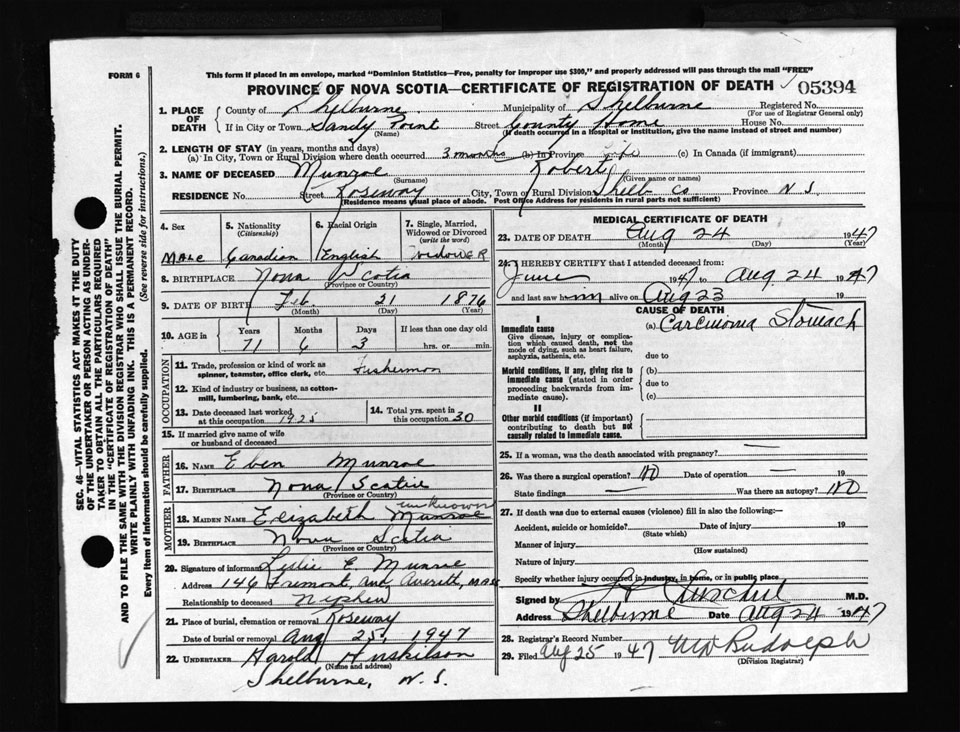 FORM 6
This form if placed in an envelope, marked "Dominion Statistics—Free, penalty for improper use $300," and properly addressed will pass through the mail "FREE"
PROVINCE OF NOVA SCOTIA—CERTIFICATE OF REGISTRATION OF DEATH 05394
1. PLACE OF DEATH County of Shelburne Municipality of Shelburne Registered No.
(For use of Registrar General only)
If in City or Town Sandy Point Street County Home House No.
(Name) (If death occurred in a Hospital or Institution, give the name instead of street and number)
2. LENGTH OF STAY (in years, months and days)
(a) In City, Town or Rural Division where death occurred 3 months (b) In Province life (c) In Canada (if immigrant)
3. NAME OF DECEASED Munroe Robert
(Surname) (Given name or names)
RESIDENCE No. Street Roseway City, Town or Rural Division Shelb Co Province N S.
(Residence means usual place of abode. Post Office Address for residents in rural parts not sufficient)
4. Sex 5. Nationality (Citizenship) 6. Racial Origin 7. Single, Married, Widowed or Divorced (write the word)
Male Canadian English Widower
8. BIRTHPLACE Nova Scotia
(Province or Country)
9. DATE OF BIRTH Feb. 21 1876
(Month) (Day) (Year)
10. AGE in Years Months Days If less than one day old
71 6 3 hrs. or min.
OCCUPATION
11. Trade, profession or kind of work as spinner, teamster, office clerk, etc. Fisherman
12. Kind of industry or business, as cotton-mill, lumbering, bank, etc.
13. Date deceased last worked at this occupation 1925 14. Total yrs. spent in this occupation 30
15. If married give name of wife or husband of deceased
FATHER
16. NAME Eben Munroe
17. BIRTHPLACE Nova Scotia
(Province or Country)
MOTHER
18. MAIDEN NAME Elizabeth Munroe unknown
19. BIRTHPLACE Nova Scotia
(Province or Country)
20. Signature of informant Leslie E. Munroe
Address 146 Fremont, Mass
Relationship to deceased Nephew
21. Place of burial, cremation or removal Roseway
Date of burial or removal Aug 25, 1947
22. UNDERTAKER Harold Huskilson
(Name and address)
Shelburne, N. S.
MEDICAL CERTIFICATE OF DEATH
23. DATE OF DEATH Aug 24 1947
(Month) (Day) (Year)
24. I HEREBY CERTIFY that I attended deceased from:
June 1947 to Aug 24 1947
and last saw him alive on Aug 23 19
CAUSE OF DEATH
I
Immediate cause (a) Carcinoma Stomach
Give disease, injury or complication which caused death, not the mode of dying, such as heart failure, asphyxia, asthenia, etc.
due to
Morbid conditions, if any, giving rise to immediate cause (stated in order proceeding backwards from immediate cause).
(b)
due to
(c)
II
Other morbid conditions (if important) contributing to death but not causally related to immediate cause.
25. If a woman, was the death associated with pregnancy? —
26. Was there a surgical operation? NO Date of operation — 19
State findings — Was there an autopsy? NO
27. If death was due to external causes (violence) fill in also the following:—
Accident, suicide or homicide? Date of injury 19
(State which)
Manner of injury
(How sustained)
Nature of injury
Specify whether injury occurred in industry, in home, or in public place
Signed by M.D.
Address Shelburne Date Aug 24 1947
28. Registrar's Record Number
29. Filed Aug 25 1947 Rudolph
(Division Registrar)
SEC. 46—VITAL STATISTICS ACT MAKES IT THE DUTY
OF THE UNDERTAKER OR PERSON ACTING AS UNDER-
TAKER TO OBTAIN ALL THE PARTICULARS REQUIRED
IN THE "CERTIFICATE OF REGISTRATION OF DEATH"
AND TO FILE THE SAME WITH THE DIVISION REGISTRAR WHO SHALL ISSUE THE BURIAL PERMIT.
WRITE PLAINLY WITH UNFADING INK. THIS IS A PERMANENT RECORD.
Every item of Information should be carefully supplied. (See reverse side for instructions.)